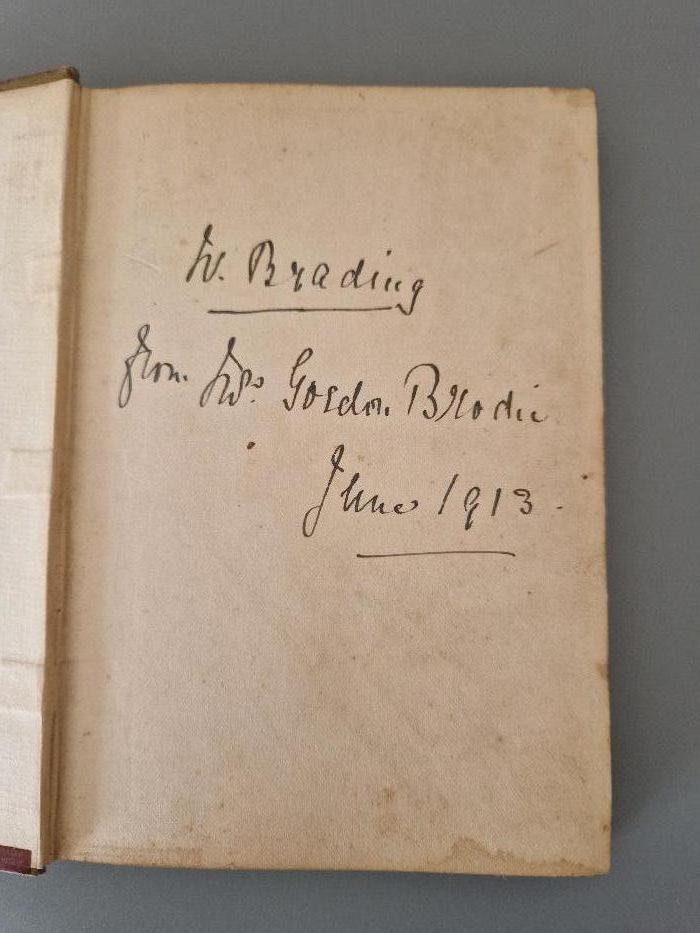 W. Brading
from Gordon Brodie
June 1913.